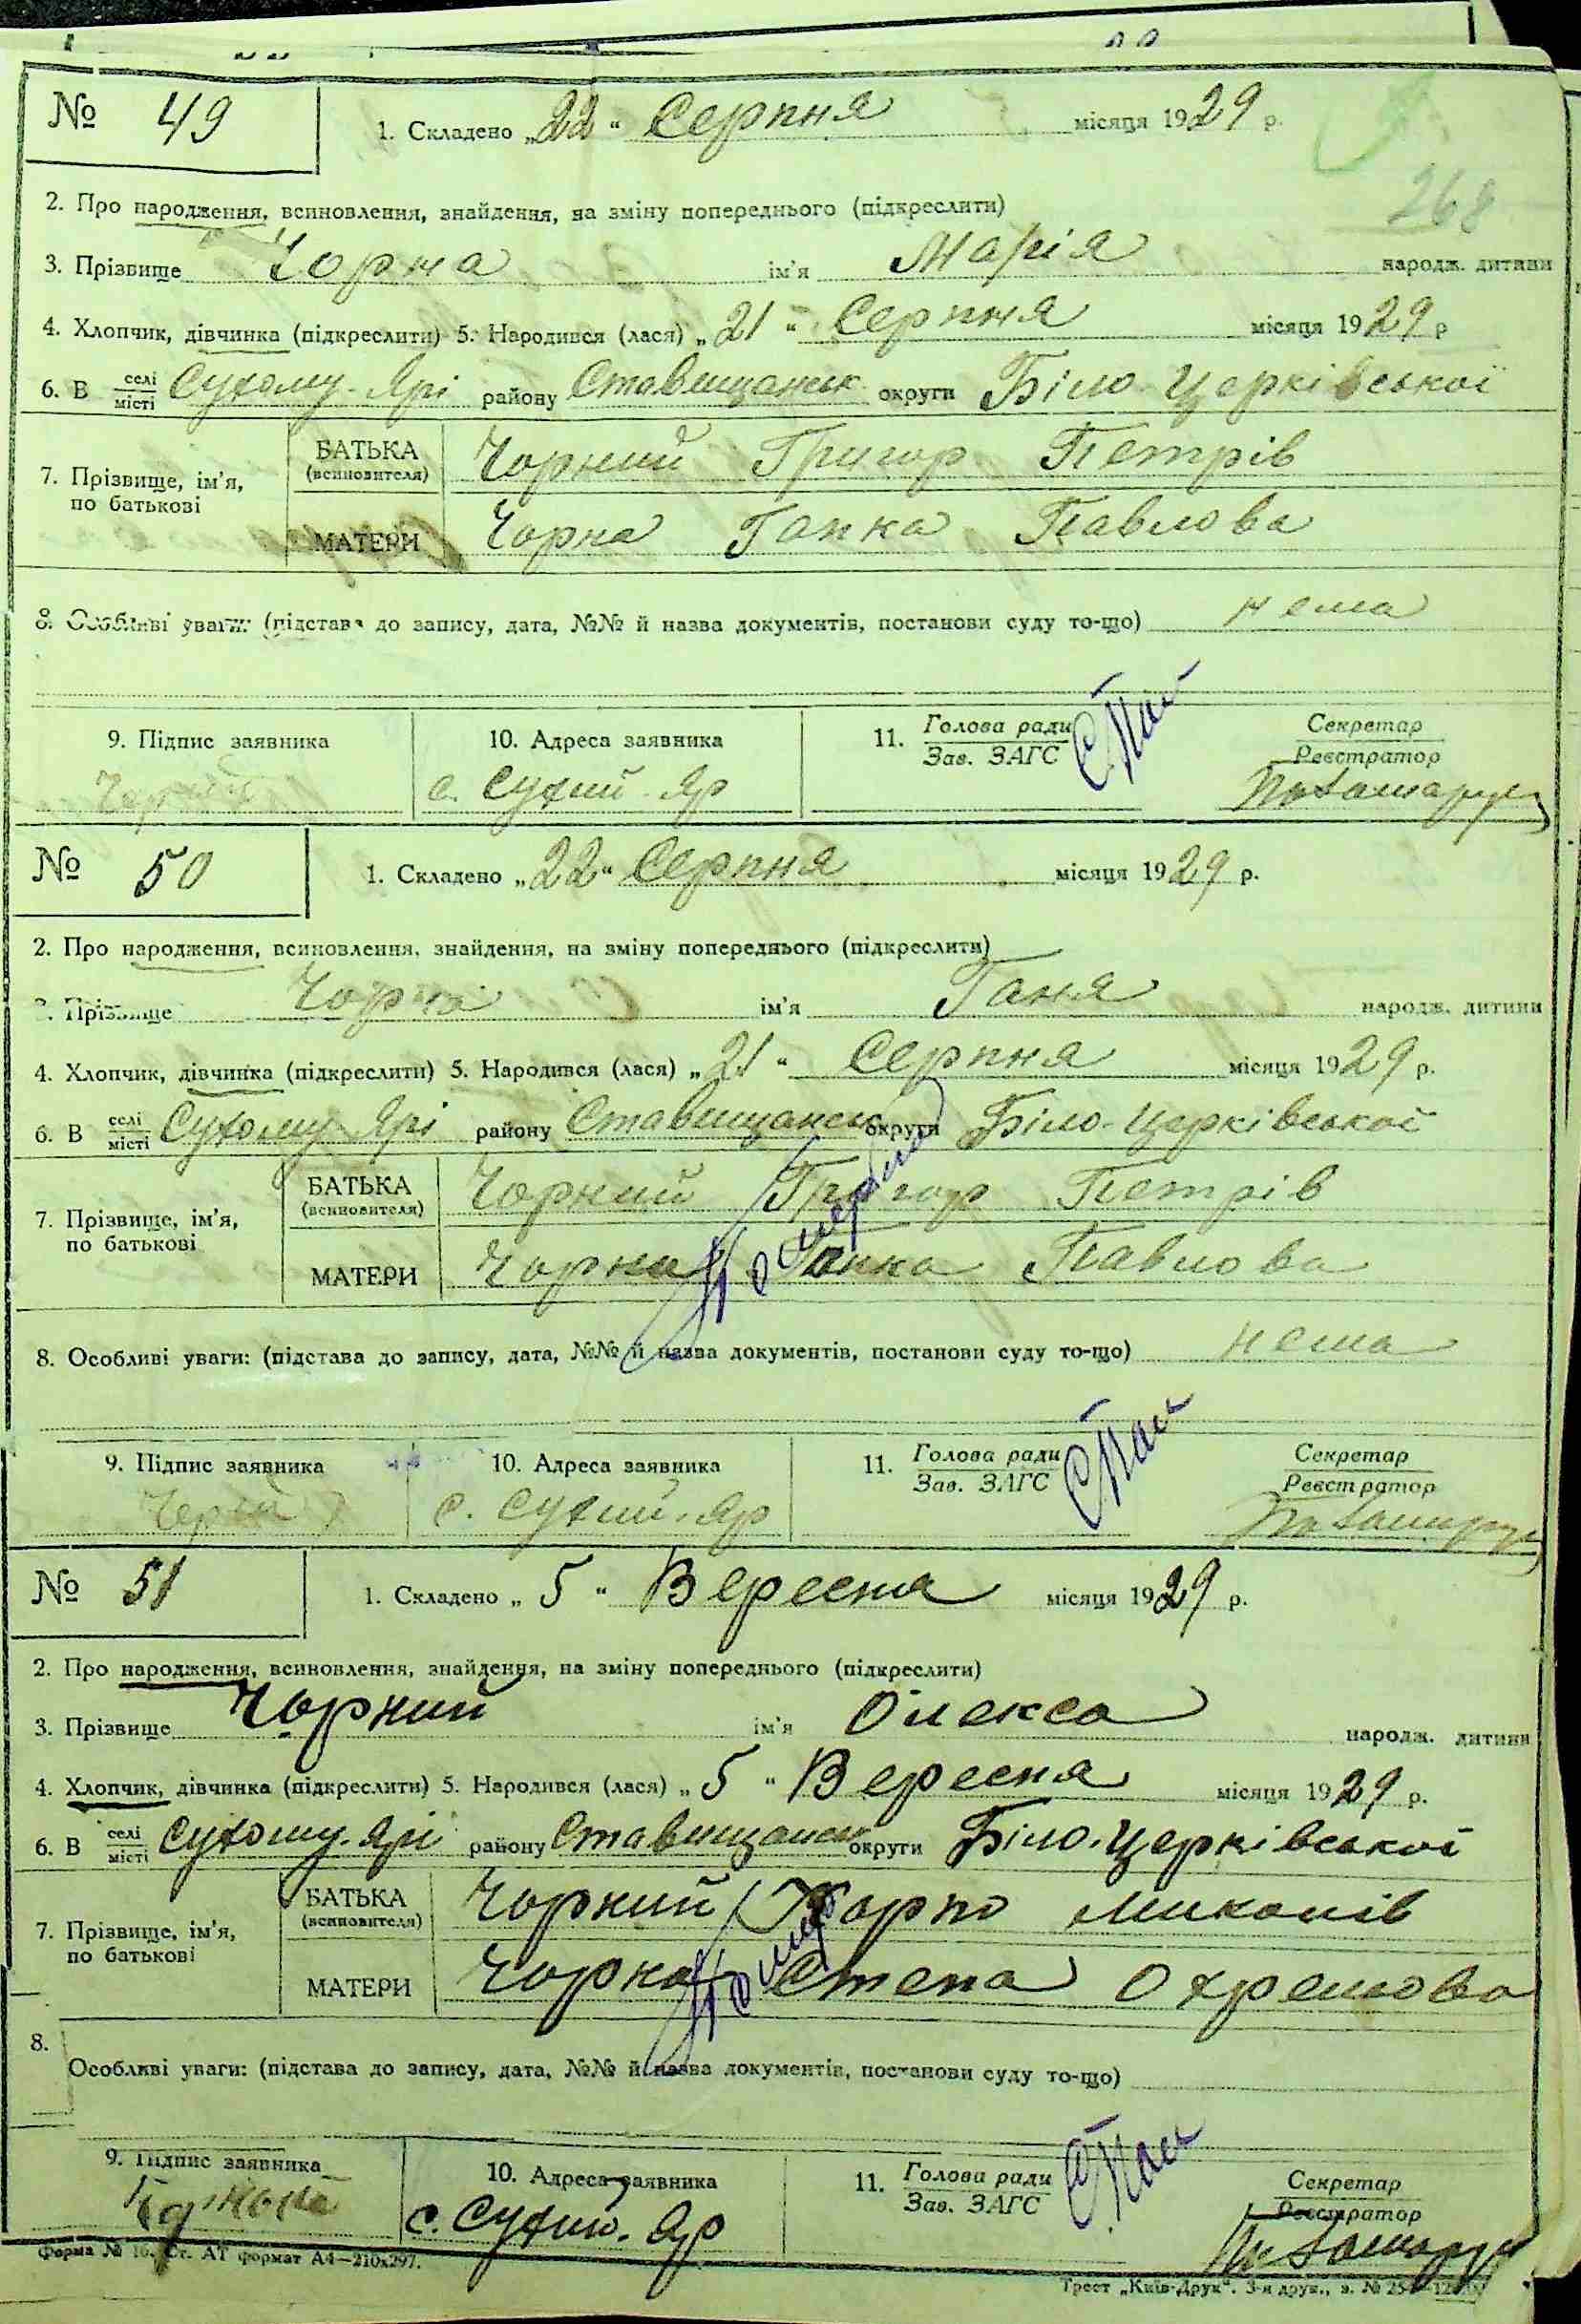 № 49
1. Складено „22“ Серпня місяця 1929 р.
268
2. Про народження, всиновлення, знайдення, на зміну попереднього (підкреслити)
3. Прізвище Чорна ім'я Марія народж. дитини
4. Хлопчик, дівчинка (підкреслити) 5. Народився (лася) „21“ Серпня місяця 1929 р
6. В селі/місті Сухому-Ярі району Ставищанськ округи Біло-Церківської
7. Прізвище, ім'я, по батькові
БАТЬКА (всиновителя) Чорний Григор Петрів
МАТЕРИ Чорна Гапка Павлова
8. Особливі уваги: (підстава до запису, дата, №№ й назва документів, постанови суду то-що) нема
9. Підпис заявника 10. Адреса заявника 11. Голова ради/Зав. ЗАГС Секретар/Реєстратор
Чорний с. Сухий-Яр
№ 50
1. Складено „22“ Серпня місяця 1929 р.
2. Про народження, всиновлення, знайдення, на зміну попереднього (підкреслити)
3. Прізвище Чорна ім'я Ганя народж. дитини
4. Хлопчик, дівчинка (підкреслити) 5. Народився (лася) „21“ Серпня місяця 1929 р.
6. В селі/місті Сухому Ярі району Ставищанськ округи Біло-Церківської
7. Прізвище, ім'я, по батькові
БАТЬКА (всиновителя) Чорний Григор Петрів
МАТЕРИ Чорна Гапка Павлова
8. Особливі уваги: (підстава до запису, дата, №№ й назва документів, постанови суду то-що) нема
9. Підпис заявника 10. Адреса заявника 11. Голова ради/Зав. ЗАГС Секретар/Реєстратор
с. Сухий-Яр
№ 51
1. Складено „5“ Вересня місяця 1929 р.
2. Про народження, всиновлення, знайдення, на зміну попереднього (підкреслити)
3. Прізвище Чорний ім'я Олекса народж. дитини
4. Хлопчик, дівчинка (підкреслити) 5. Народився (лася) „5“ Вересня місяця 1929 р.
6. В селі/місті Сухому-Ярі району Ставищанськ округи Біло-Церківської
7. Прізвище, ім'я, по батькові
БАТЬКА (всиновителя) Чорний Карпо Миколів
МАТЕРИ Чорна Степа Охремова
8. Особливі уваги: (підстава до запису, дата, №№ й назва документів, постанови суду то-що)
9. Підпис заявника 10. Адреса заявника 11. Голова ради/Зав. ЗАГС Секретар/Реєстратор
с. Сухий-Яр
Форма № 16. Ст. АТ формат А4—210х297.
Трест „Київ-Друк“. 3-я друк., з. №